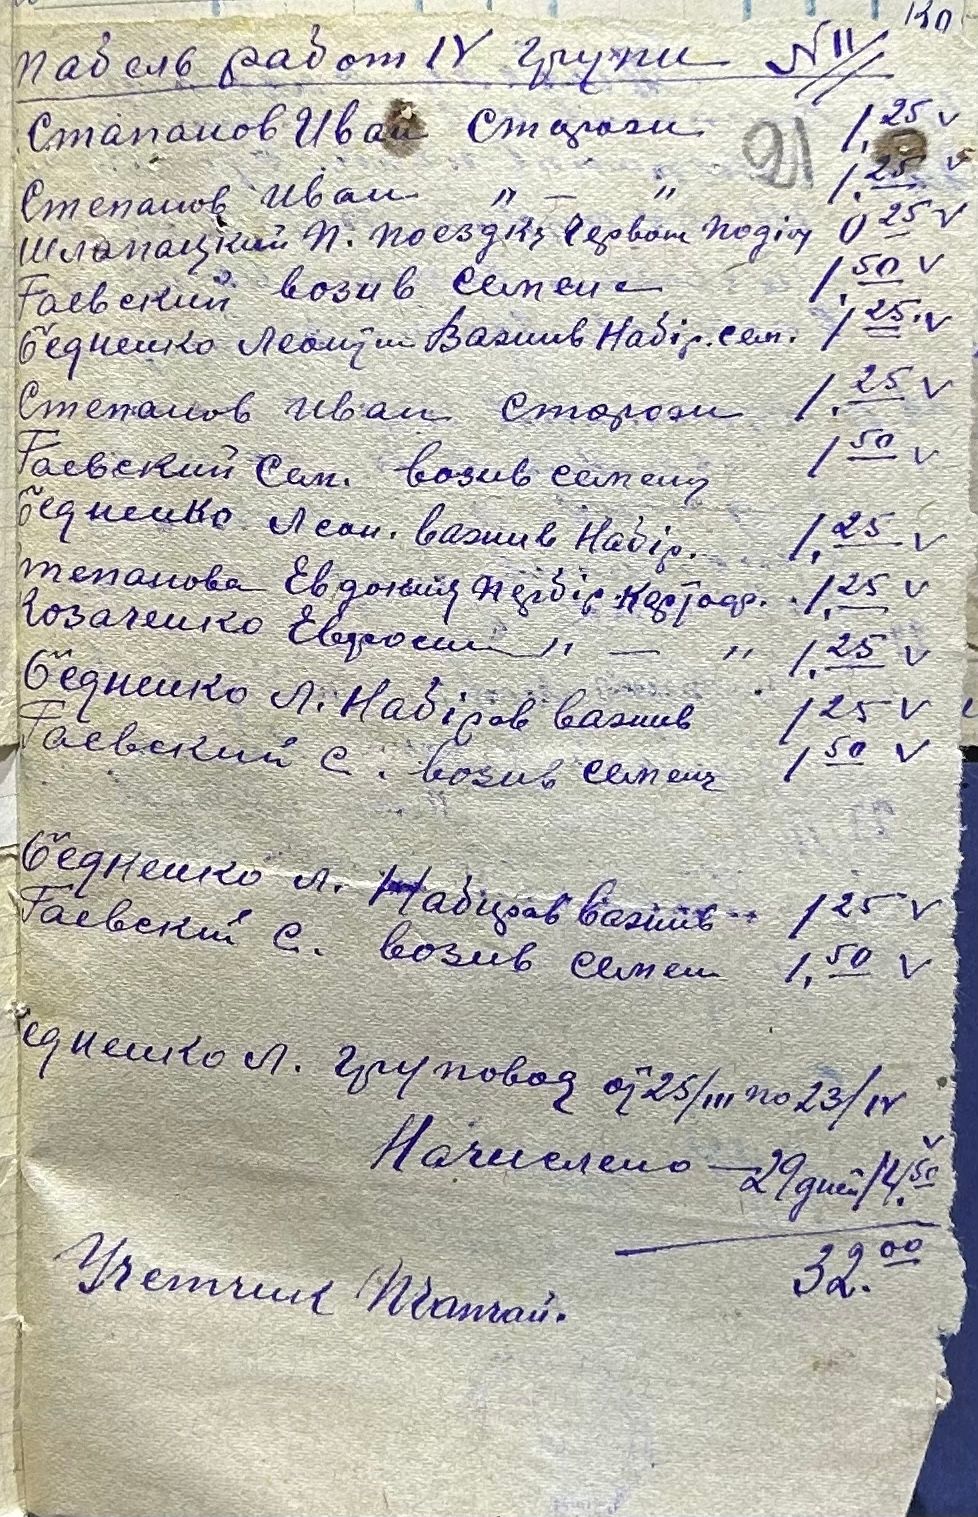 130
Табель работ IV групи N 11
91
Стапанов Иван Сторожи 1.25 v
Степанов Иван " — " 1.25 v
Шлапацкий П. поездку Червон поділ 0 25 v
Гаевский возив семена 1.50 v
Бедненко Леонт Важив Набір. сем. 1 25 v
Степанов Иван Сторожи 1.25 v
Гаевский Сем. возив семену 1 50 v
Бедненко Леон. важив Набір. 1.25 v
тепанова Евдокия перебір картофр. 1.25 v
Козаченко Евросин " — " 1.25 v
Бедненко Л. Набіров важив 1 25 v
Гаевский С. возив семену 1.50 v
Бедненко Л. Набиров важив 1 25 v
Гаевский С. возив семен 1.50 v
едненко Л. груповод от 25/III по 23/IV
Начислено — 29 дней 14.50 v
32.00
Учетчик